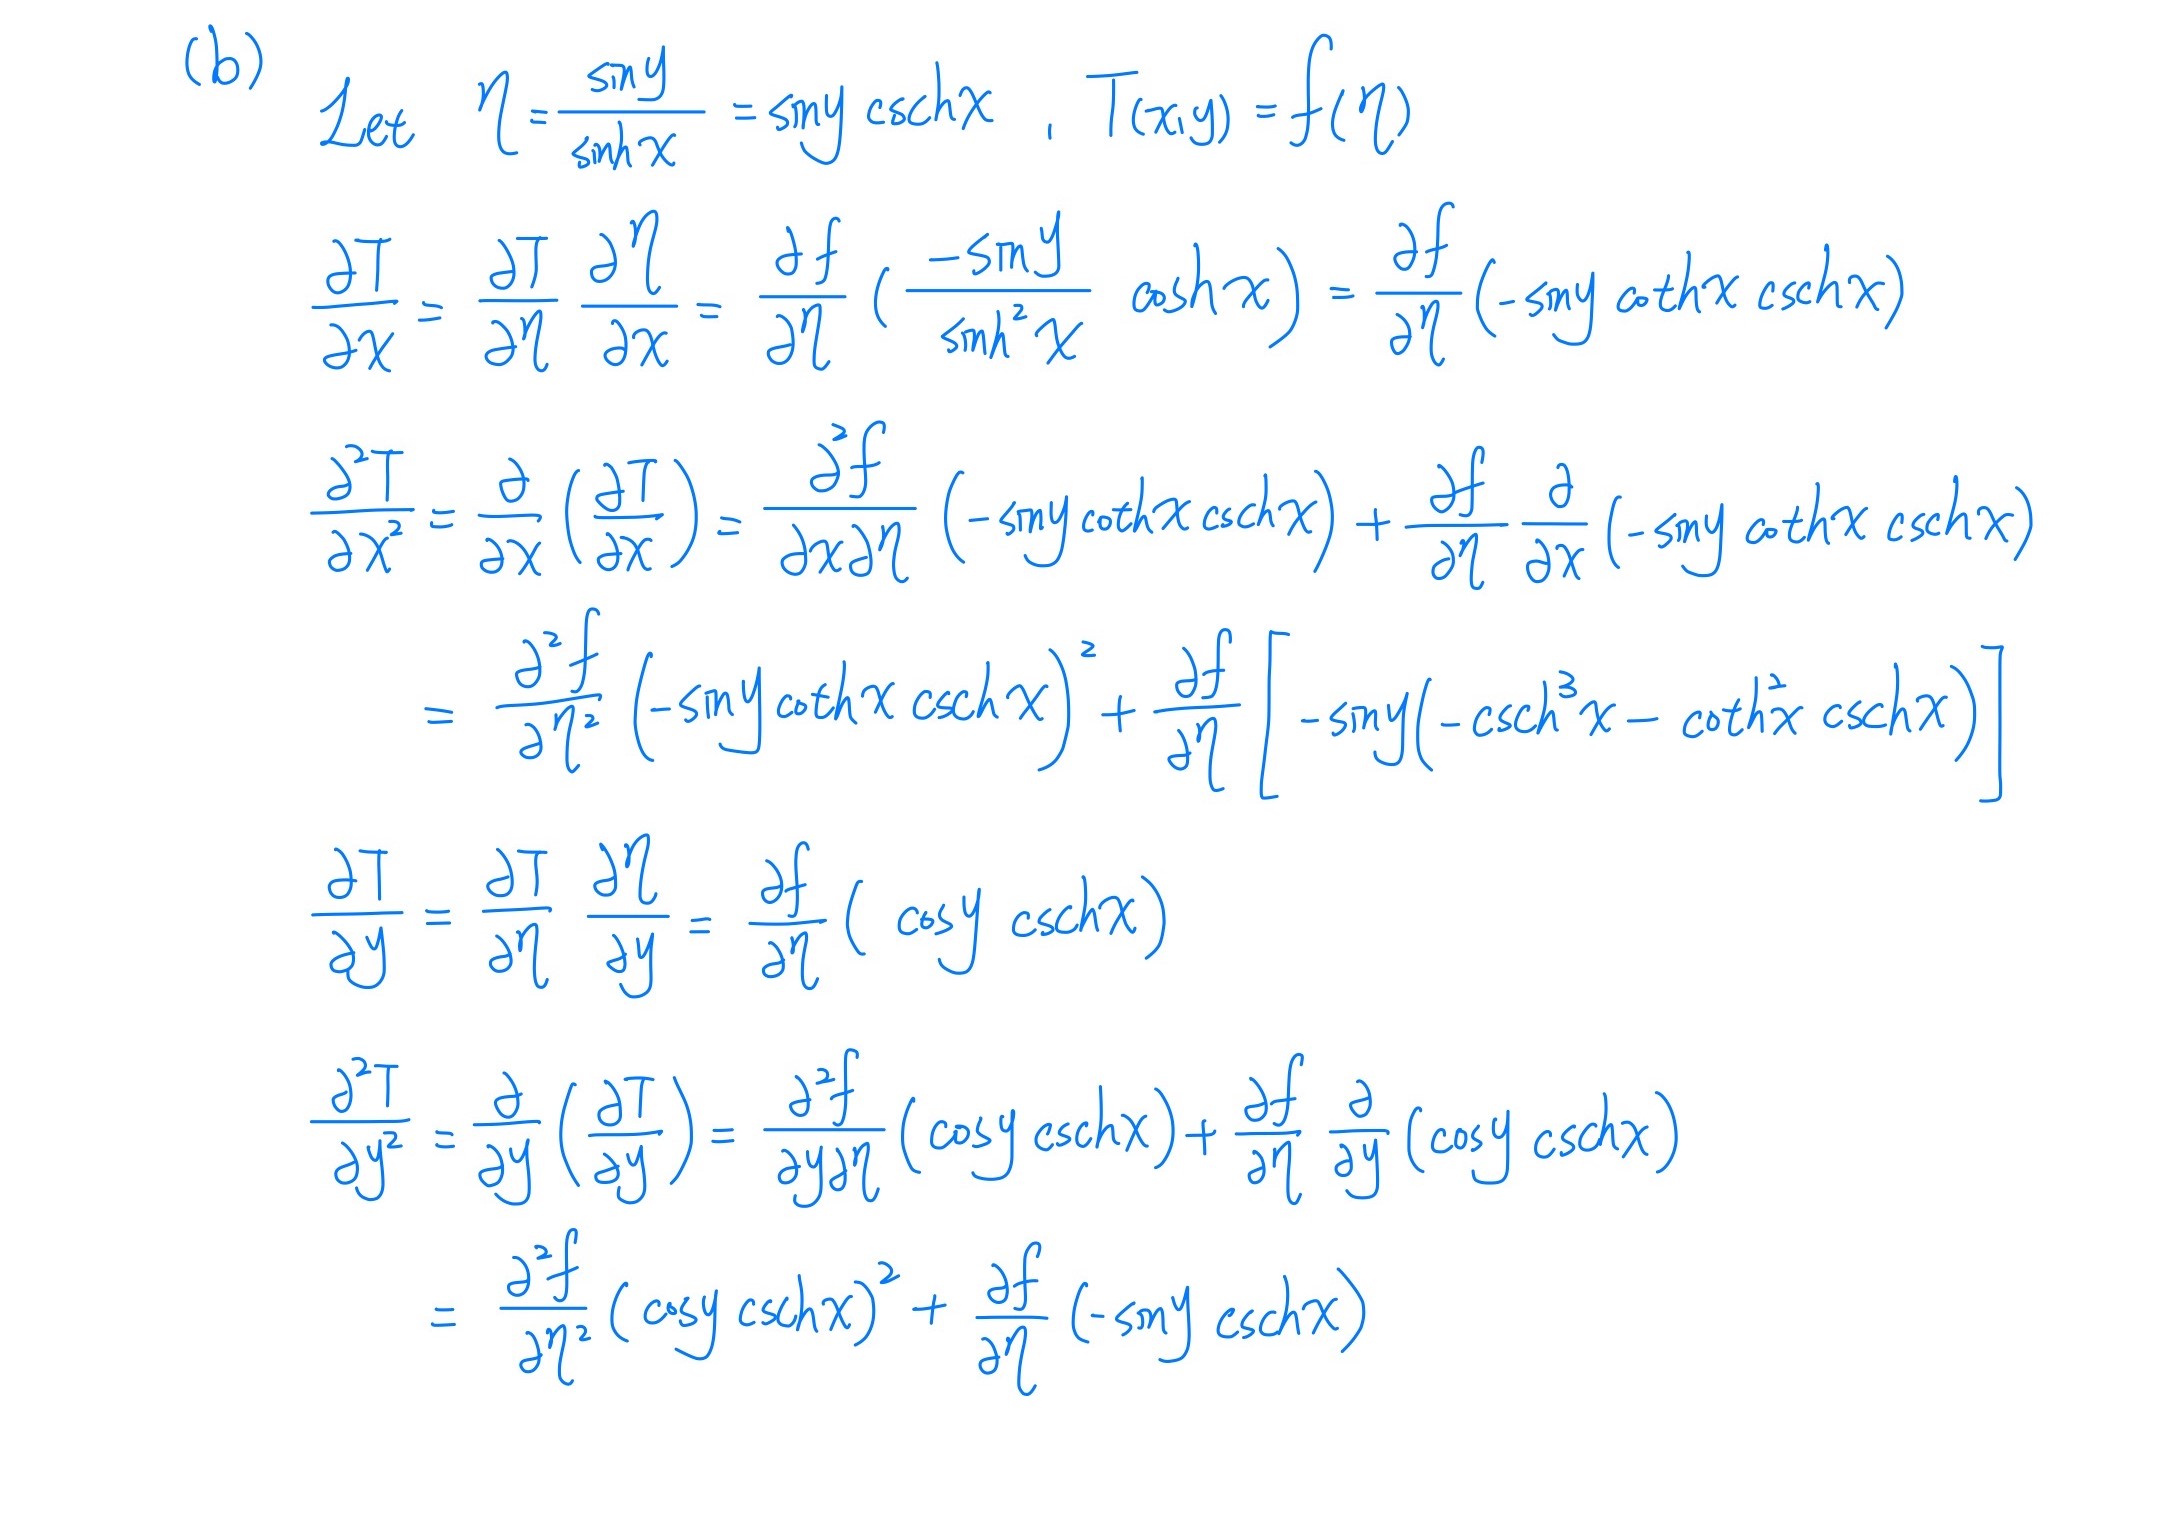 (b)
Let η = sin y / sinh x = sin y csch x , T(x,y) = f(η)
∂T/∂x = ∂T/∂η ∂η/∂x = ∂f/∂η ( -sin y / sinh² x cosh x ) = ∂f/∂η (-sin y coth x csch x)
∂²T/∂x² = ∂/∂x (∂T/∂x) = ∂²f/∂x∂η (-sin y coth x csch x) + ∂f/∂η ∂/∂x (-sin y coth x csch x)
= ∂²f/∂η² (-sin y coth x csch x)² + ∂f/∂η [ -sin y (-csch³ x - coth² x csch x) ]
∂T/∂y = ∂T/∂η ∂η/∂y = ∂f/∂η ( cos y csch x)
∂²T/∂y² = ∂/∂y (∂T/∂y) = ∂²f/∂y∂η (cos y csch x) + ∂f/∂η ∂/∂y (cos y csch x)
= ∂²f/∂η² (cos y csch x)² + ∂f/∂η (-sin y csch x)